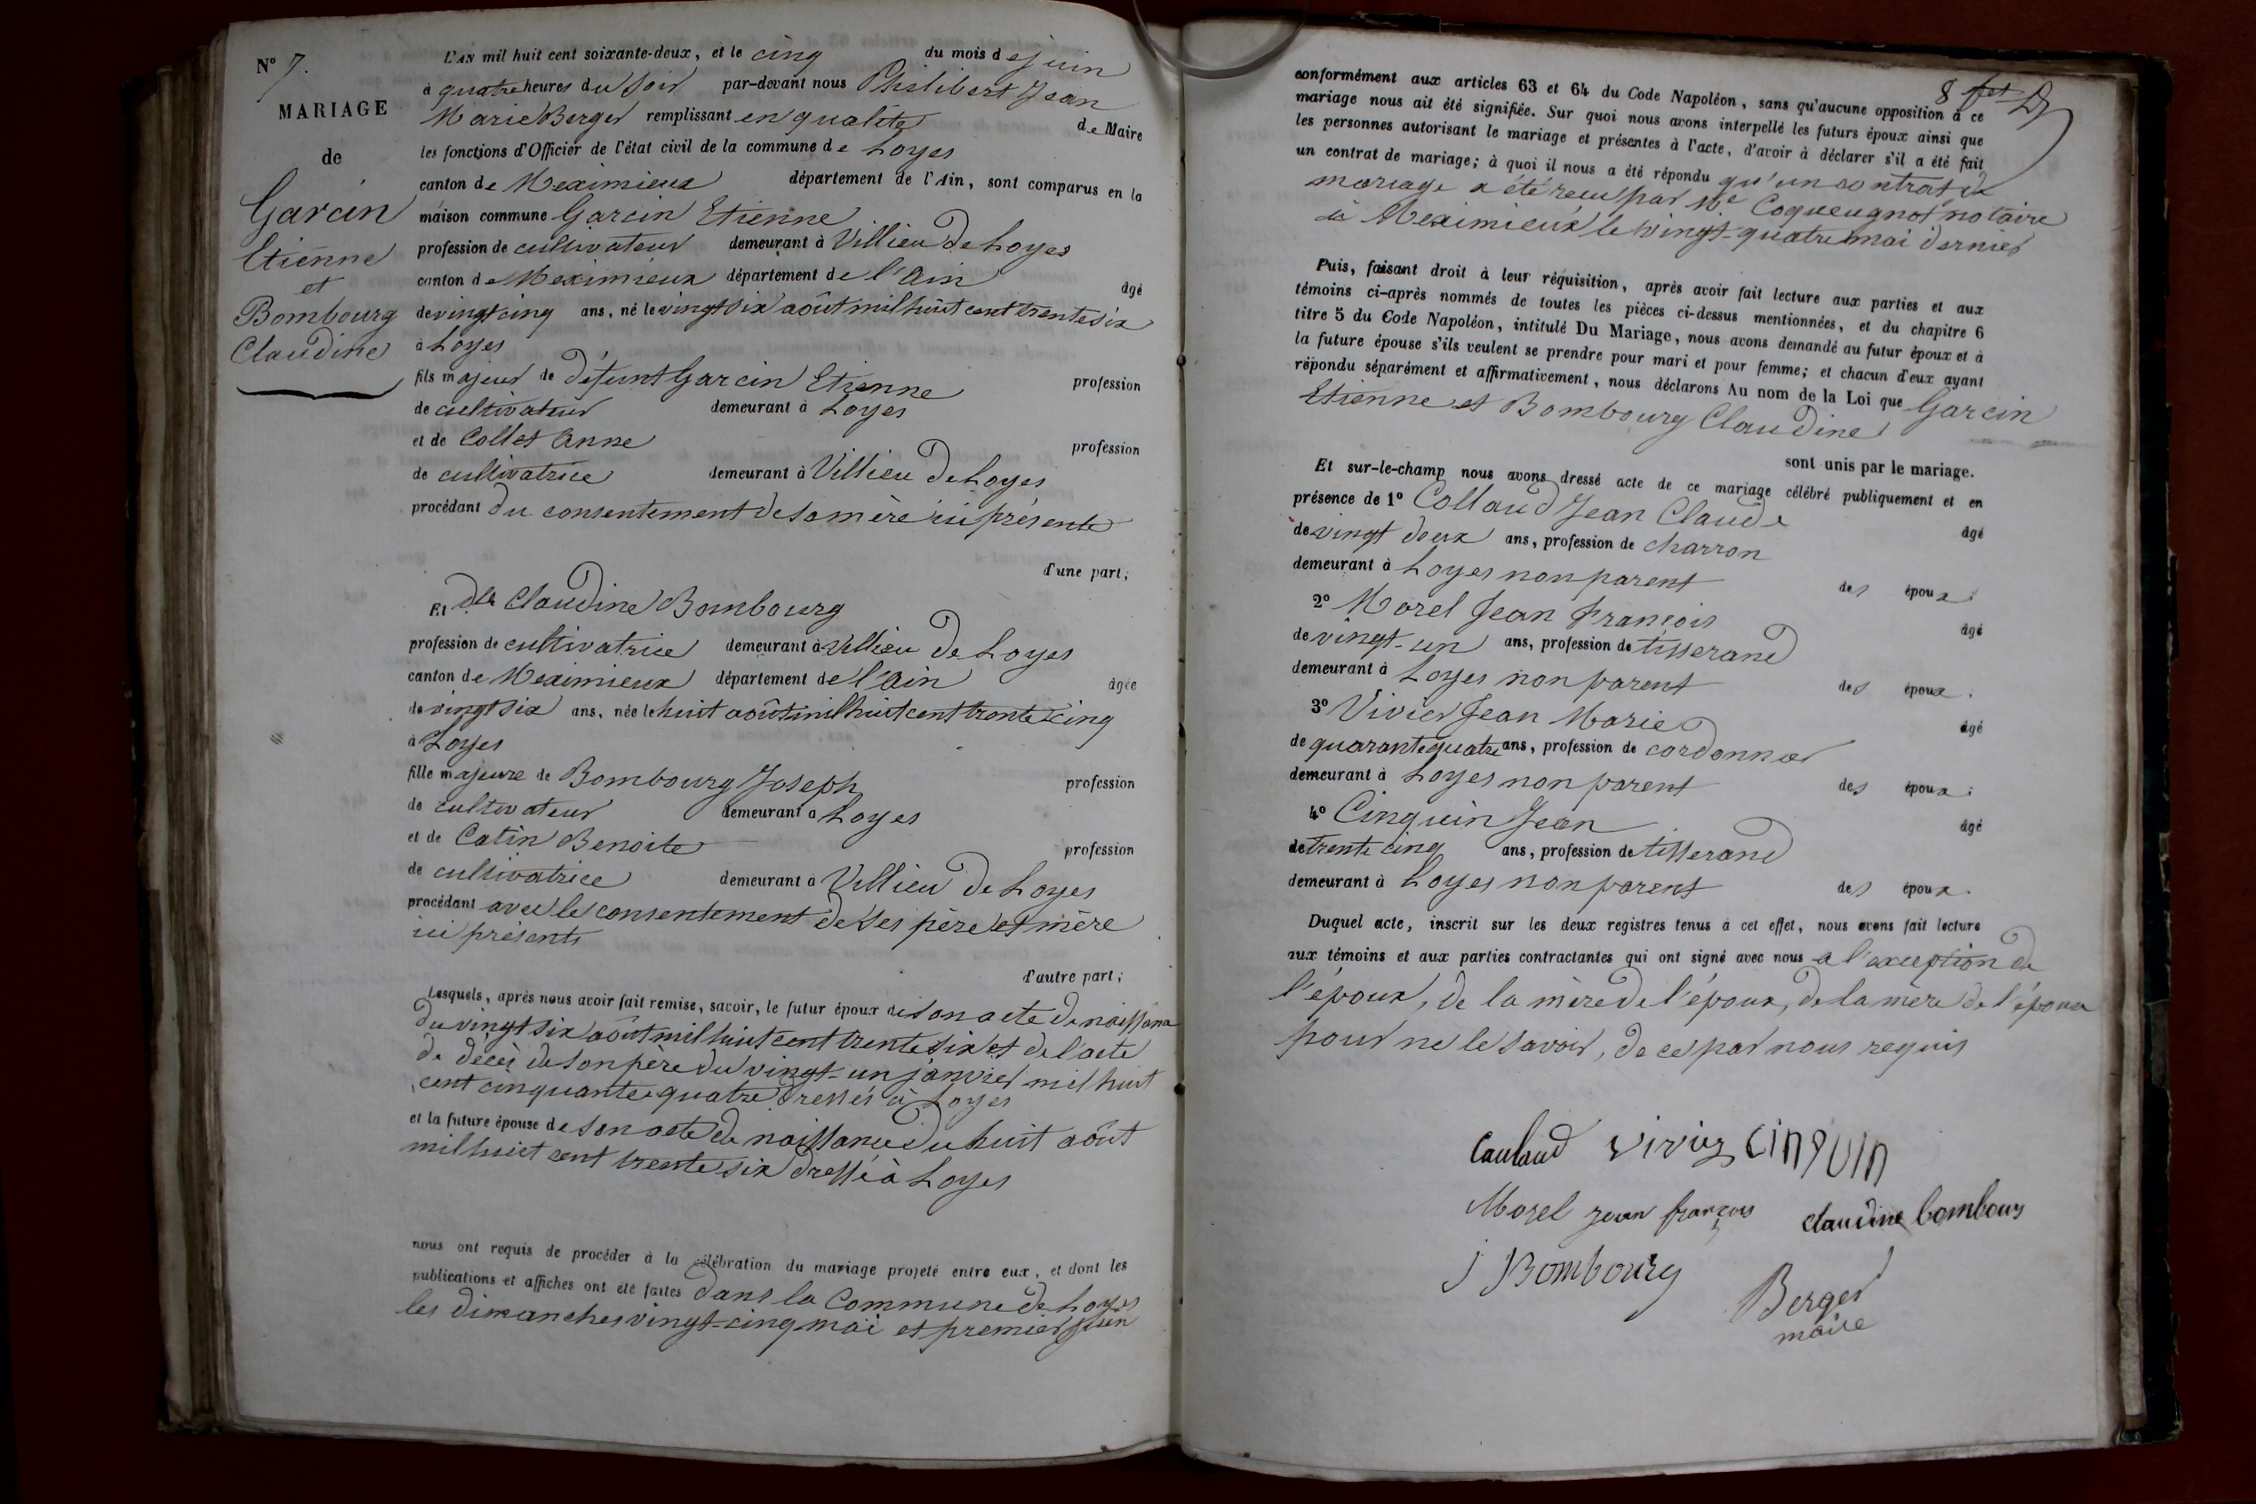 N° 7.
MARIAGE
de
Garcin
Etienne
et
Bombourg
Claudine
L'AN mil huit cent soixante-deux, et le cinq du mois de juin
à quatre heures du soir par-devant nous Philibert Jean
Marie Berger remplissant en qualité de Maire
les fonctions d'Officier de l'état civil de la commune de Loyes
canton de Meximieux département de l'Ain, sont comparus en la
maison commune Garcin Etienne
profession de cultivateur demeurant à Villieu De Loyes
canton de Meximieux département de l'Ain âgé
de vingt cinq ans, né le vingt six août mil huit cent trente six
à Loyes
fils majeur de défunt Garcin Etienne profession
de cultivateur demeurant à Loyes
et de Collet Anne profession
de cultivatrice demeurant à Villieu De Loyes
procédant du consentement de sa mère ici présente
d'une part;
Et Dlle Claudine Bombourg
profession de cultivatrice demeurant à Villieu De Loyes
canton de Meximieux département de l'Ain âgée
de vingt six ans, née le huit août mil huit cent trente cinq
à Loyes
fille majeure de Bombourg Joseph profession
de cultivateur demeurant à Loyes
et de Catin Benoite profession
de cultivatrice demeurant à Villieu De Loyes
procédant avec le consentement de ses père et mère
ici présents
d'autre part;
Lesquels, après nous avoir fait remise, savoir, le futur époux de son acte de naissance
du vingt six août mil huit cent trente six et de l'acte
de décès de son père du vingt-un janvier mil huit
cent cinquante-quatre dressés à Loyes
et la future épouse de son acte de naissance du huit août
mil huit cent trente six dressé à Loyes
nous ont requis de procéder à la célébration du mariage projeté entre eux, et dont les
publications et affiches ont été faites dans la Commune de Loyes
les dimanches vingt-cinq mai et premier juin
8
conformément aux articles 63 et 64 du Code Napoléon, sans qu'aucune opposition à ce
mariage nous ait été signifiée. Sur quoi nous avons interpellé les futurs époux ainsi que
les personnes autorisant le mariage et présentes à l'acte, d'avoir à déclarer s'il a été fait
un contrat de mariage; à quoi il nous a été répondu qu'un contrat de
mariage a été reçu par Me Coqueugnot notaire
à Meximieux le vingt-quatre mai dernier
Puis, faisant droit à leur réquisition, après avoir fait lecture aux parties et aux
témoins ci-après nommés de toutes les pièces ci-dessus mentionnées, et du chapitre 6
titre 5 du Code Napoléon, intitulé Du Mariage, nous avons demandé au futur époux et à
la future épouse s'ils veulent se prendre pour mari et pour femme; et chacun d'eux ayant
répondu séparément et affirmativement, nous déclarons Au nom de la Loi que Garcin
Etienne et Bombourg Claudine
sont unis par le mariage.
Et sur-le-champ nous avons dressé acte de ce mariage célébré publiquement et en
présence de 1° Collaud Jean Claude âgé
de vingt deux ans, profession de charron
demeurant à Loyes non parent des époux.
2° Morel Jean François âgé
de vingt-un ans, profession de tisserand
demeurant à Loyes non parent des époux.
3° Vivier Jean Marie âgé
de quarante quatre ans, profession de cordonnier
demeurant à Loyes non parent des époux.
4° Cinquin Jean âgé
de trente cinq ans, profession de tisserand
demeurant à Loyes non parent des époux.
Duquel acte, inscrit sur les deux registres tenus à cet effet, nous avons fait lecture
aux témoins et aux parties contractantes qui ont signé avec nous à l'exception de
l'époux, de la mère de l'époux, de la mère de l'épouse
pour ne le savoir, de ce par nous requis
Caulaud Vivier CINQUIN
Morel jean françois claudine bombour
J Bombourg
Berger
maire